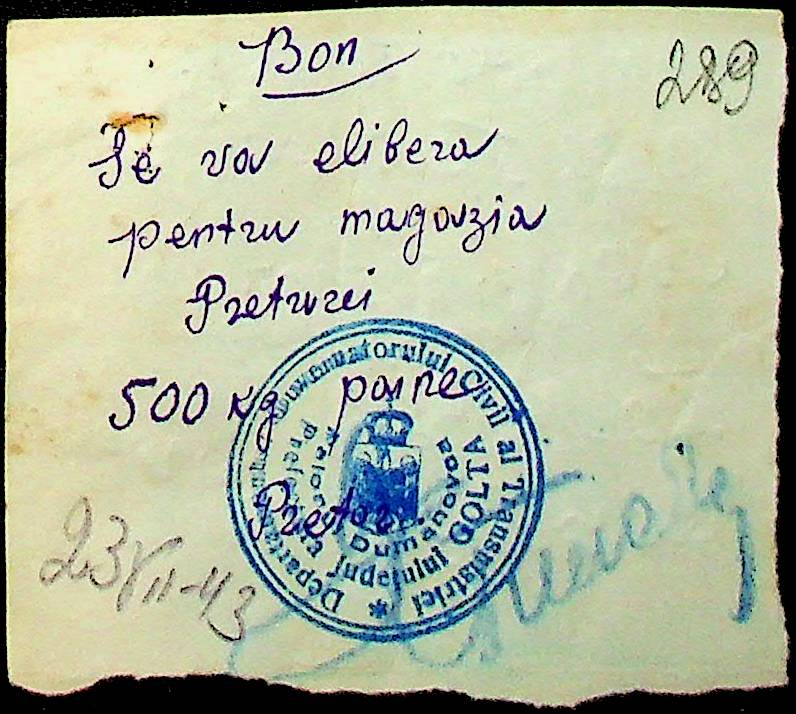 Bon
289
Se va elibera
pentru magazia
Preturei
500 kg paine
Pretor
23 VII-43
Guvernatorului Civil al Transnistriei
Judeţului GOLTA
Dumanovca